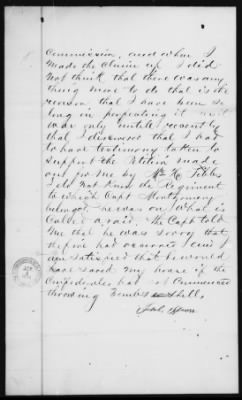 Commission, and when I
made the Claim up I did
Not think that there was any
thing more to do that is the
reason that I have been so
long in prosecuting it and
was only until recently
that I discovered that I had
to have testimony taken to
support the Petition made
out for me by Wm H.
I do Not Know the Regiment
to which Capt Montgomery
belonged, he was on what is
Called a raid. The Capt told
Me that he was sorry that
the fire had occurred and I
am satisfied that he would
have saved my house if the
Confederates had not Commenced
throwing bombs & shell.